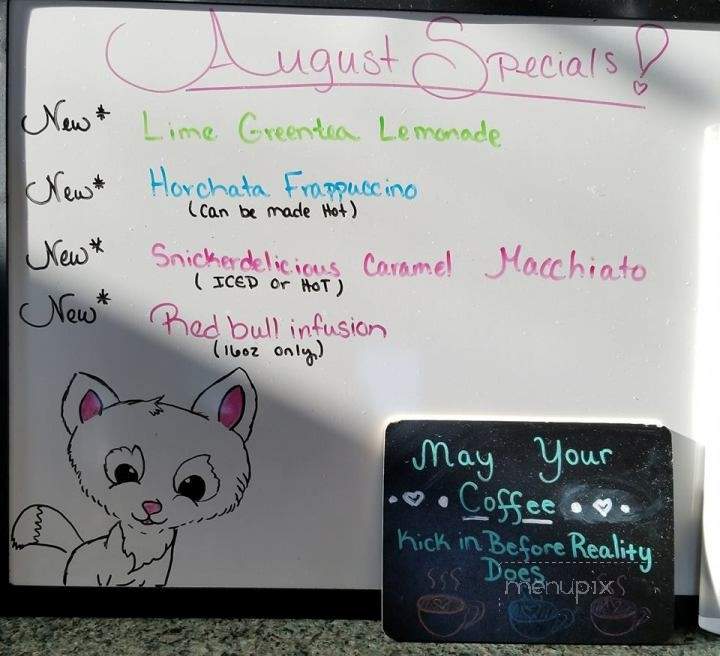 August Specials!
New* Lime Greentea Lemonade
New* Horchata Frappuccino
(Can be made Hot)
New* Snickerdelicious Caramel Macchiato
( ICED or HOT )
New* Red bull infusion
(16oz only)
May Your
Coffee
Kick in Before Reality
Does
menupix